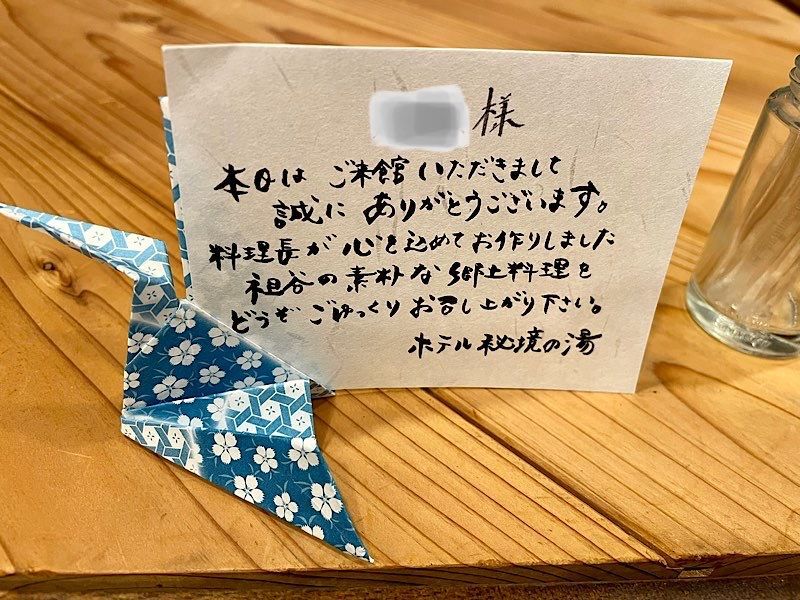 様
本日は ご来館 いただきまして
誠に ありがとうございます。
料理長が 心を込めてお作りしました
祖谷の素朴な 郷土料理を
どうぞ ごゆっくり お召し上がり下さい。
ホテル秘境の湯